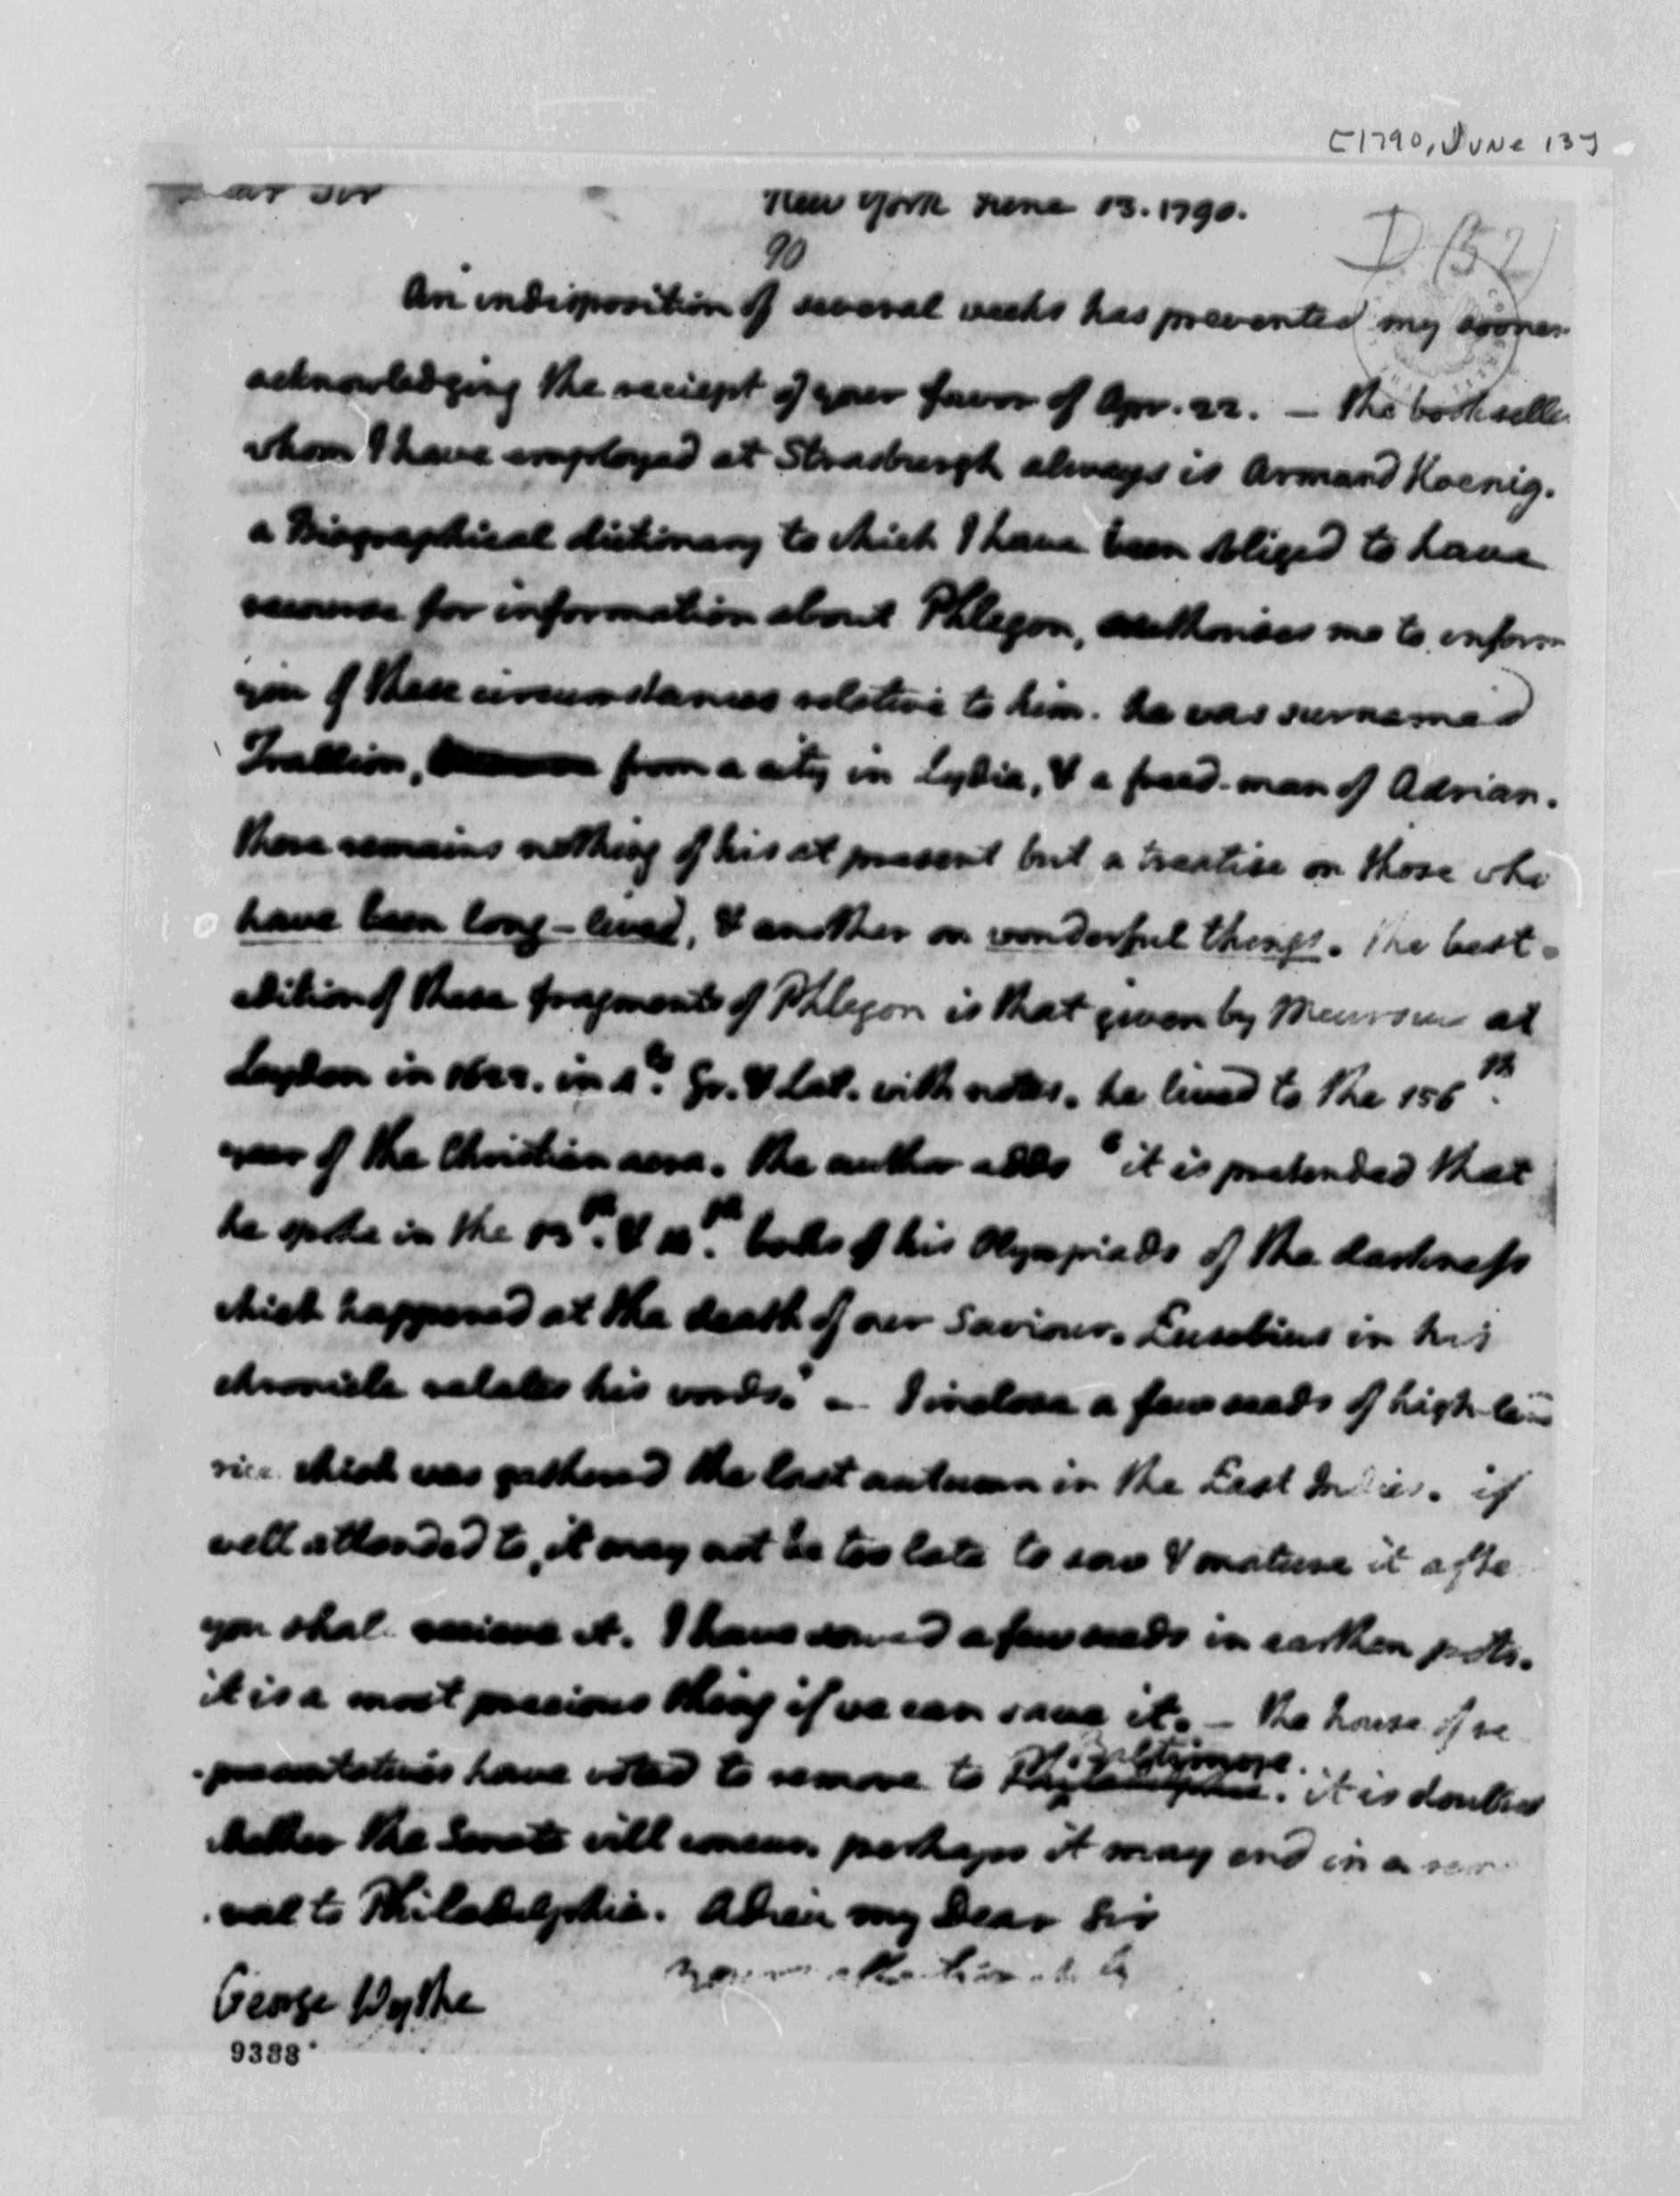 [1790, JUNE 13]
Dear Sir
New York June 13. 1790.
90
D (52)
An indisposition of several weeks has prevented my sooner
acknowledging the reciept of your favor of Apr. 22. — the bookselle
whom I have employed at Strasburgh always is Armand Koenig.
a Biographical dictionary to which I have been obliged to have
recourse for information about Phlegon, authorises me to inform
you of these circumstances relative to him. he was surnamed
Trallion, from a city in Lydia, & a freed-man of Adrian.
there remains nothing of his at present but a treatise on those who
have been long-lived, & another on wonderful things. the best
edition of these fragments of Phlegon is that given by Meursius at
Leyden in 1622. in 4to. Gr. & Lat. with notes. he lived to the 156th.
year of the Christian aera. the author adds 'it is pretended that
he spoke in the 13th. & 14th. books of his Olympiads of the darkness
which happened at the death of our Saviour. Eusebius in his
chronicle relates his words.' — I inclose a few seeds of high-land
rice which was gathered the last autumn in the East Indies. if
well attended to, it may not be too late to sow & mature it afte
you shall recieve it. I have sowed a few seeds in earthen pots.
it is a most precious thing if we can save it. — the house of re
-presentatives have voted to remove to Baltimore. it is doubted
whether the Senate will concur. perhaps it may end in a remo
val to Philadelphia. Adieu my Dear Sir
Yours affectionately
George Wythe
9388